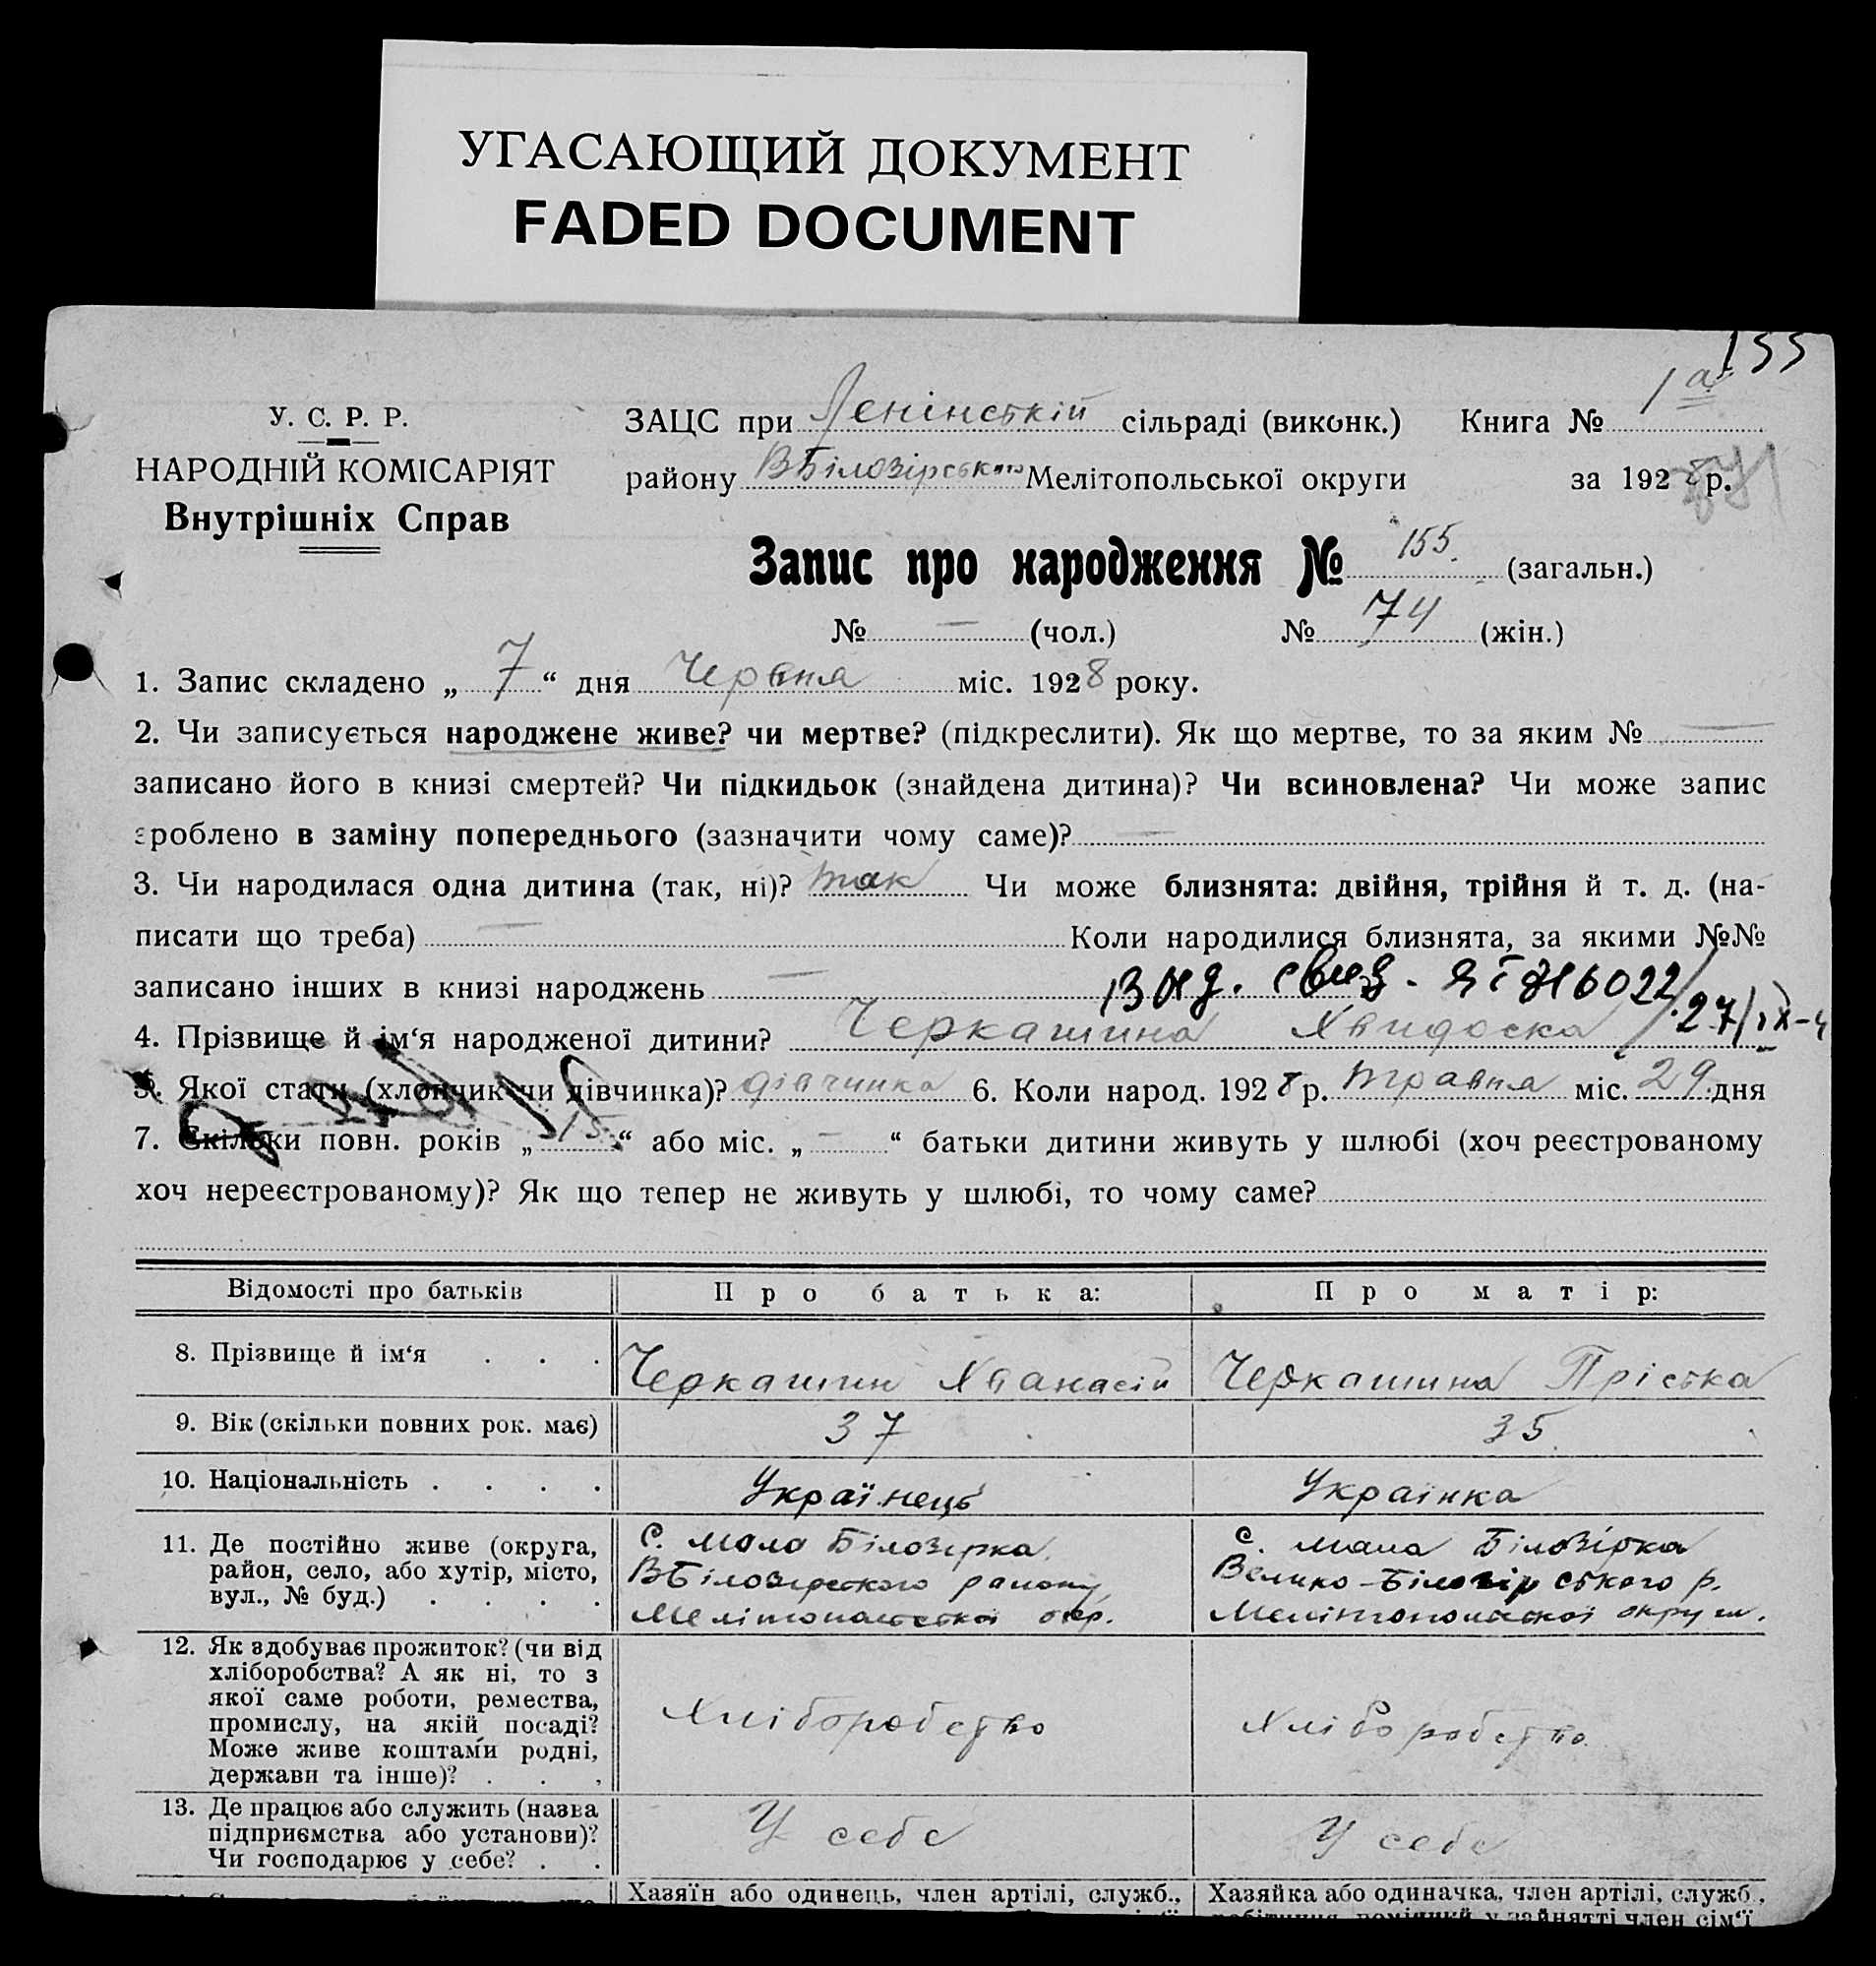 УГАСАЮЩИЙ ДОКУМЕНТ
FADED DOCUMENT
155
У. С. Р. Р.
НАРОДНІЙ КОМІСАРІЯТ
Внутрішніх Справ
ЗАЦС при Ленінській сільраді (виконк.) Книга № 1а
району ВБілозірського Мелітопольської округи за 1928 р.
Запис про народження № 155. (загальн.)
№ — (чол.) № 74 (жін.)
1. Запис складено „ 7 “ дня Червня міс. 1928 року.
2. Чи записується народжене живе? чи мертве? (підкреслити). Як що мертве, то за яким № —
записано його в книзі смертей? Чи підкидьок (знайдена дитина)? Чи всиновлена? Чи може запис
зроблено в заміну попереднього (зазначити чому саме)? —
3. Чи народилася одна дитина (так, ні)? так Чи може близнята: двійня, трійня й т. д. (на-
писати що треба) — Коли народилися близнята, за якими №№
записано інших в книзі народжень —
Выд. свид.
4. Прізвище й ім‘я народженої дитини? Черкашина Хвидоска
5. Якої стати (хлопчик чи дівчинка)? дівчинка 6. Коли народ. 1928 р. травня міс. 29 дня
7. Скільки повн. років „ 15 “ або міс. „ — “ батьки дитини живуть у шлюбі (хоч реєстрованому
хоч нереєстрованому)? Як що тепер не живуть у шлюбі, то чому саме?
Відомості про батьків
Про батька:
Про матір:
8. Прізвище й ім‘я . . .
Черкашин Хванасій
Черкашина Пріська
9. Вік (скільки повних рок. має)
37
35
10. Національність . . . .
Українець
Украінка
11. Де постійно живе (округа,
район, село, або хутір, місто,
вул., № буд.) . . . .
С. Мала Білозирка
ВБілозирського району
Мелітопольської окр.
с. Мала Білозірка
Велико-Білозірського р.
Мелітопольської округи.
12. Як здобуває прожиток? (чи від
хліборобства? А як ні, то з
якої саме роботи, ремества,
промислу, на якій посаді?
Може живе коштами родні,
держави та інше)? . . .
Хліборобство
Хліборобство
13. Де працює або служить (назва
підприємства або установи)?
Чи господарює у себе? . .
У себе
У себе
Хазяїн або одинець, член артілі, служб.,
Хазяйка або одиначка, член артілі, служб.,